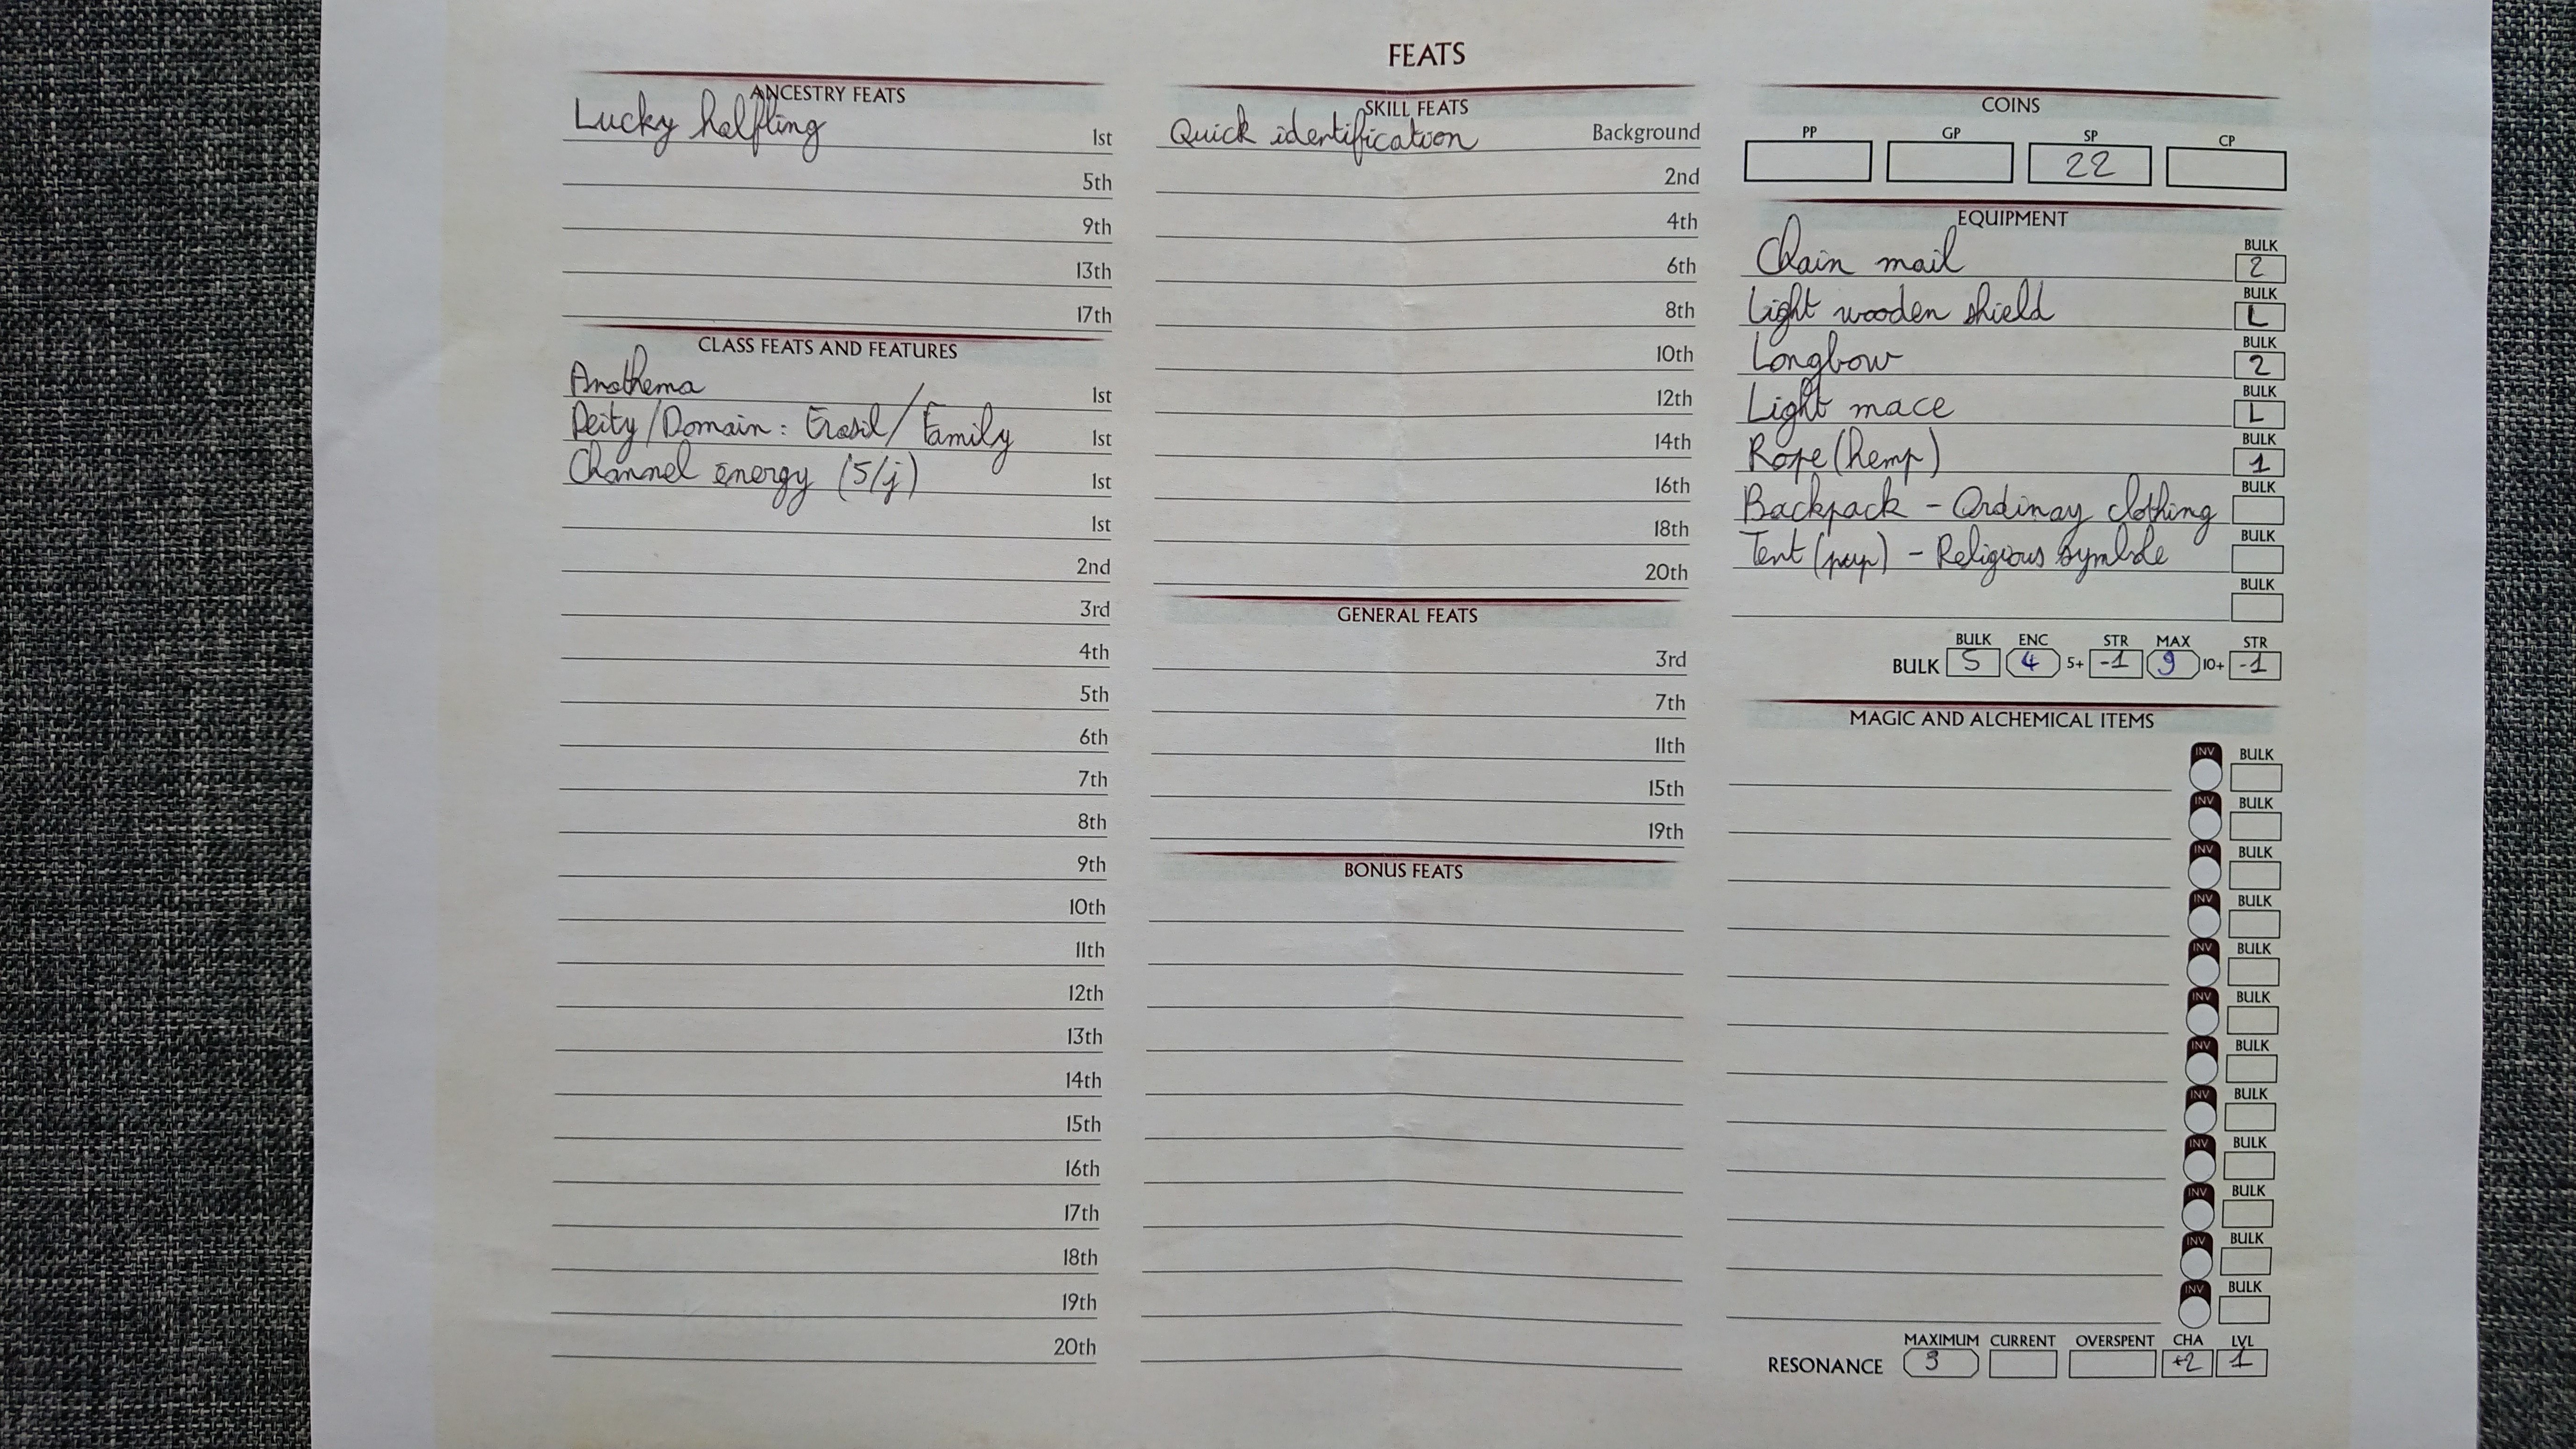 FEATS
ANCESTRY FEATS
Lucky halfling 1st
5th
9th
13th
17th
CLASS FEATS AND FEATURES
Anathema 1st
Deity/Domain: Erastil/Family 1st
Channel energy (5/j) 1st
1st
2nd
3rd
4th
5th
6th
7th
8th
9th
10th
11th
12th
13th
14th
15th
16th
17th
18th
19th
20th
SKILL FEATS
Quick identification Background
2nd
4th
6th
8th
10th
12th
14th
16th
18th
20th
GENERAL FEATS
3rd
7th
11th
15th
19th
BONUS FEATS
COINS
PP GP SP CP
22
EQUIPMENT
BULK
Chain mail 2
BULK
Light wooden shield L
BULK
Longbow 2
BULK
Light mace L
BULK
Rope (hemp) 1
BULK
Backpack - Ordinay clothing
BULK
Tent (pup) - Religious symbole
BULK
BULK ENC STR MAX STR
BULK 5 4 5+ -1 9 10+ -1
MAGIC AND ALCHEMICAL ITEMS
INV BULK
INV BULK
INV BULK
INV BULK
INV BULK
INV BULK
INV BULK
INV BULK
INV BULK
INV BULK
INV BULK
INV BULK
MAXIMUM CURRENT OVERSPENT CHA LVL
RESONANCE 3 +2 1